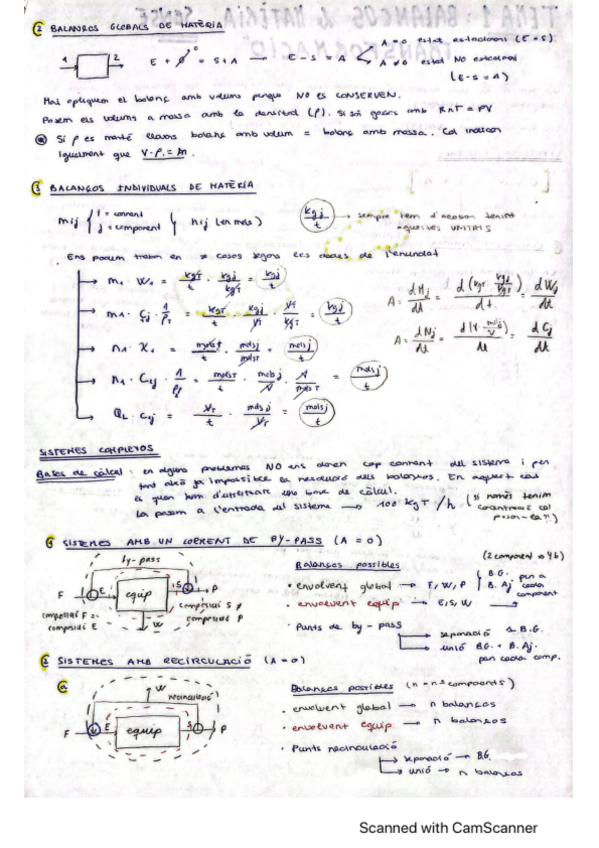 ② BALANÇOS GLOBALS DE MATÈRIA
1 2 E + G = S + A → E - S = A
A = 0 estat estacionari (E = S)
A ≠ 0 estat NO estacionari
(E - S = A)
Mai apliquem el balanç amb volums perquè NO ES CONSERVEN.
Passem els volums a massa amb la densitat (ρ). Si són gasos amb RnT = PV
Si ρ es manté llavors balanç amb volum = balanç amb massa. Cal indicar
igualment que V·ρ = m.
③ BALANÇOS INDIVIDUALS DE MATÈRIA
mij { i = corrent
j = component } nij (en mols)
kgj / t → sempre hem d'acabar tenint
aquestes UNITATS
Ens podem trobar en casos segons les dades de l'enunciat
m1 · W1 = kgT/t · kgj/kgT = kgj/t
m1 · Cj · 1/ρT = kgT/t · kgj/VT · VT/kgT = kgj/t
n1 · X1 = molsT/t · molsj/molsT = molsj/t
n1 · Cij · 1/ρ = molsT/t · molsj/V · V/molsT = molsj/t
QL · Cij = VT/t · molsj/VT = molsj/t
A = dMj/dt = d(kgT · kgj/kgT)/dt = dWj/dt
A = dNj/dt = d(V · molsj/V)/dt = dCj/dt
SISTEMES COMPLETOS
Bases de càlcul: en alguns problemes NO ens donen cap corrent del sistema i per
tant això fa impossible la resolució dels balanços. En aquest cas
és quan hem d'utilitzar una base de càlcul.
La posem a l'entrada del sistema → 100 kgT/h (!! només tenim
concentració
① SISTEMES AMB UN CORRENT DE BY-PASS (A = 0)
by-pass
F E equip S P
W
composició F =
composició E
composició S ≠
composició P
Balanços possibles
(2 component
• envolvent global → F, W, P { B.G.
B. Aj per a
cada
component
• envolvent equip → E, S, W
• Punts de by-pass
separació → B.G.
unió B.G. + B. Aj.
per cada comp.
② SISTEMES AMB RECIRCULACIÓ (A = 0)
a
W
recirculació
F E equip S P
Balanços possibles (n = nº components)
• envolvent global → n balanços
• envolvent equip → n balanços
• Punts recirculació
separació → B.G.
unió → n balanços
Scanned with CamScanner